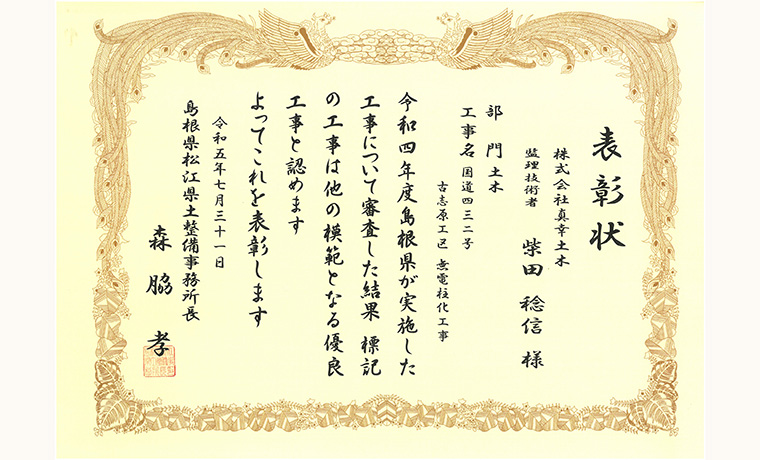 表彰状
株式会社真幸土木
監理技術者 柴田 稔信 様
部門 土木
工事名 国道四三二号
古志原工区 無電柱化工事
令和四年度島根県が実施した
工事について審査した結果 標記
の工事は他の模範となる優良
工事と認めます
よってこれを表彰します
令和五年七月三十一日
島根県松江県土整備事務所長
森脇 孝